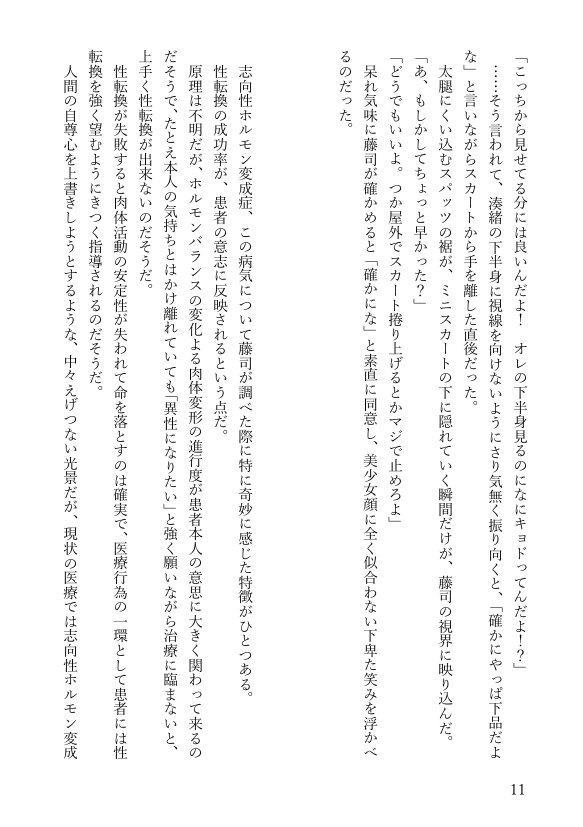 「こっちから見せてる分には良いんだよ！　オレの下半身見るのになにキョドってんだよ！？」
……そう言われて、湊緒の下半身に視線を向けないようにさり気無く振り向くと、「確かにやっぱ下品だよ
な」と言いながらスカートから手を離した直後だった。
太腿にくい込むスパッツの裾が、ミニスカートの下に隠れていく瞬間だけが、藤司の視界に映り込んだ。
「あ、もしかしてちょっと早かった？」
「どうでもいいよ。つか屋外でスカート捲り上げるとかマジで止めろよ」
呆れ気味に藤司が確かめると「確かにな」と素直に同意し、美少女顔に全く似合わない下卑た笑みを浮かべ
るのだった。
志向性ホルモン変成症、この病気について藤司が調べた際に特に奇妙に感じた特徴がひとつある。
性転換の成功率が、患者の意志に反映されるという点だ。
原理は不明だが、ホルモンバランスの変化よる肉体変形の進行度が患者本人の意思に大きく関わって来るの
だそうで、たとえ本人の気持ちとはかけ離れていても「異性になりたい」と強く願いながら治療に臨まないと、
上手く性転換が出来ないのだそうだ。
性転換が失敗すると肉体活動の安定性が失われて命を落とすのは確実で、医療行為の一環として患者には性
転換を強く望むようにきつく指導されるのだそうだ。
人間の自尊心を上書きしようとするような、中々えげつない光景だが、現状の医療では志向性ホルモン変成
11